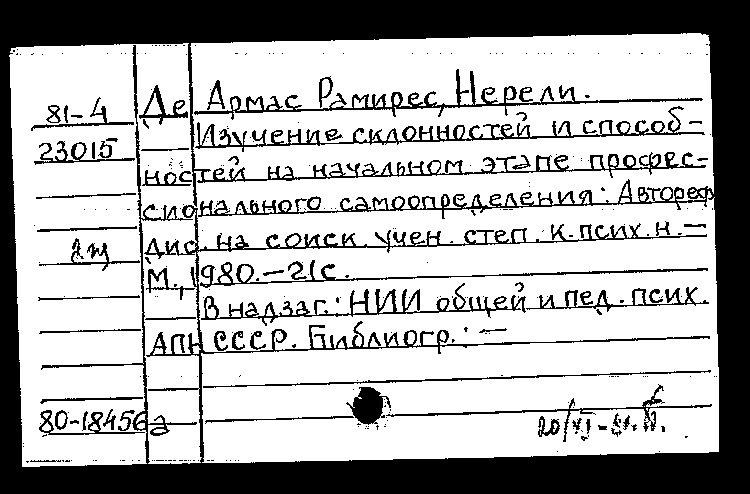 81-4 Де Армас Рамирес, Нерели.
23015 Изучение склонностей и способ-
ностей на начальном этапе профес-
сионального самоопределения: Автореф
дис. на соиск. учен. степ. к. псих. н. —
М., 1980. — 21 с.
В надзаг.: НИИ общей и пед. псих.
АПН СССР. Библиогр.: —
80-18456а